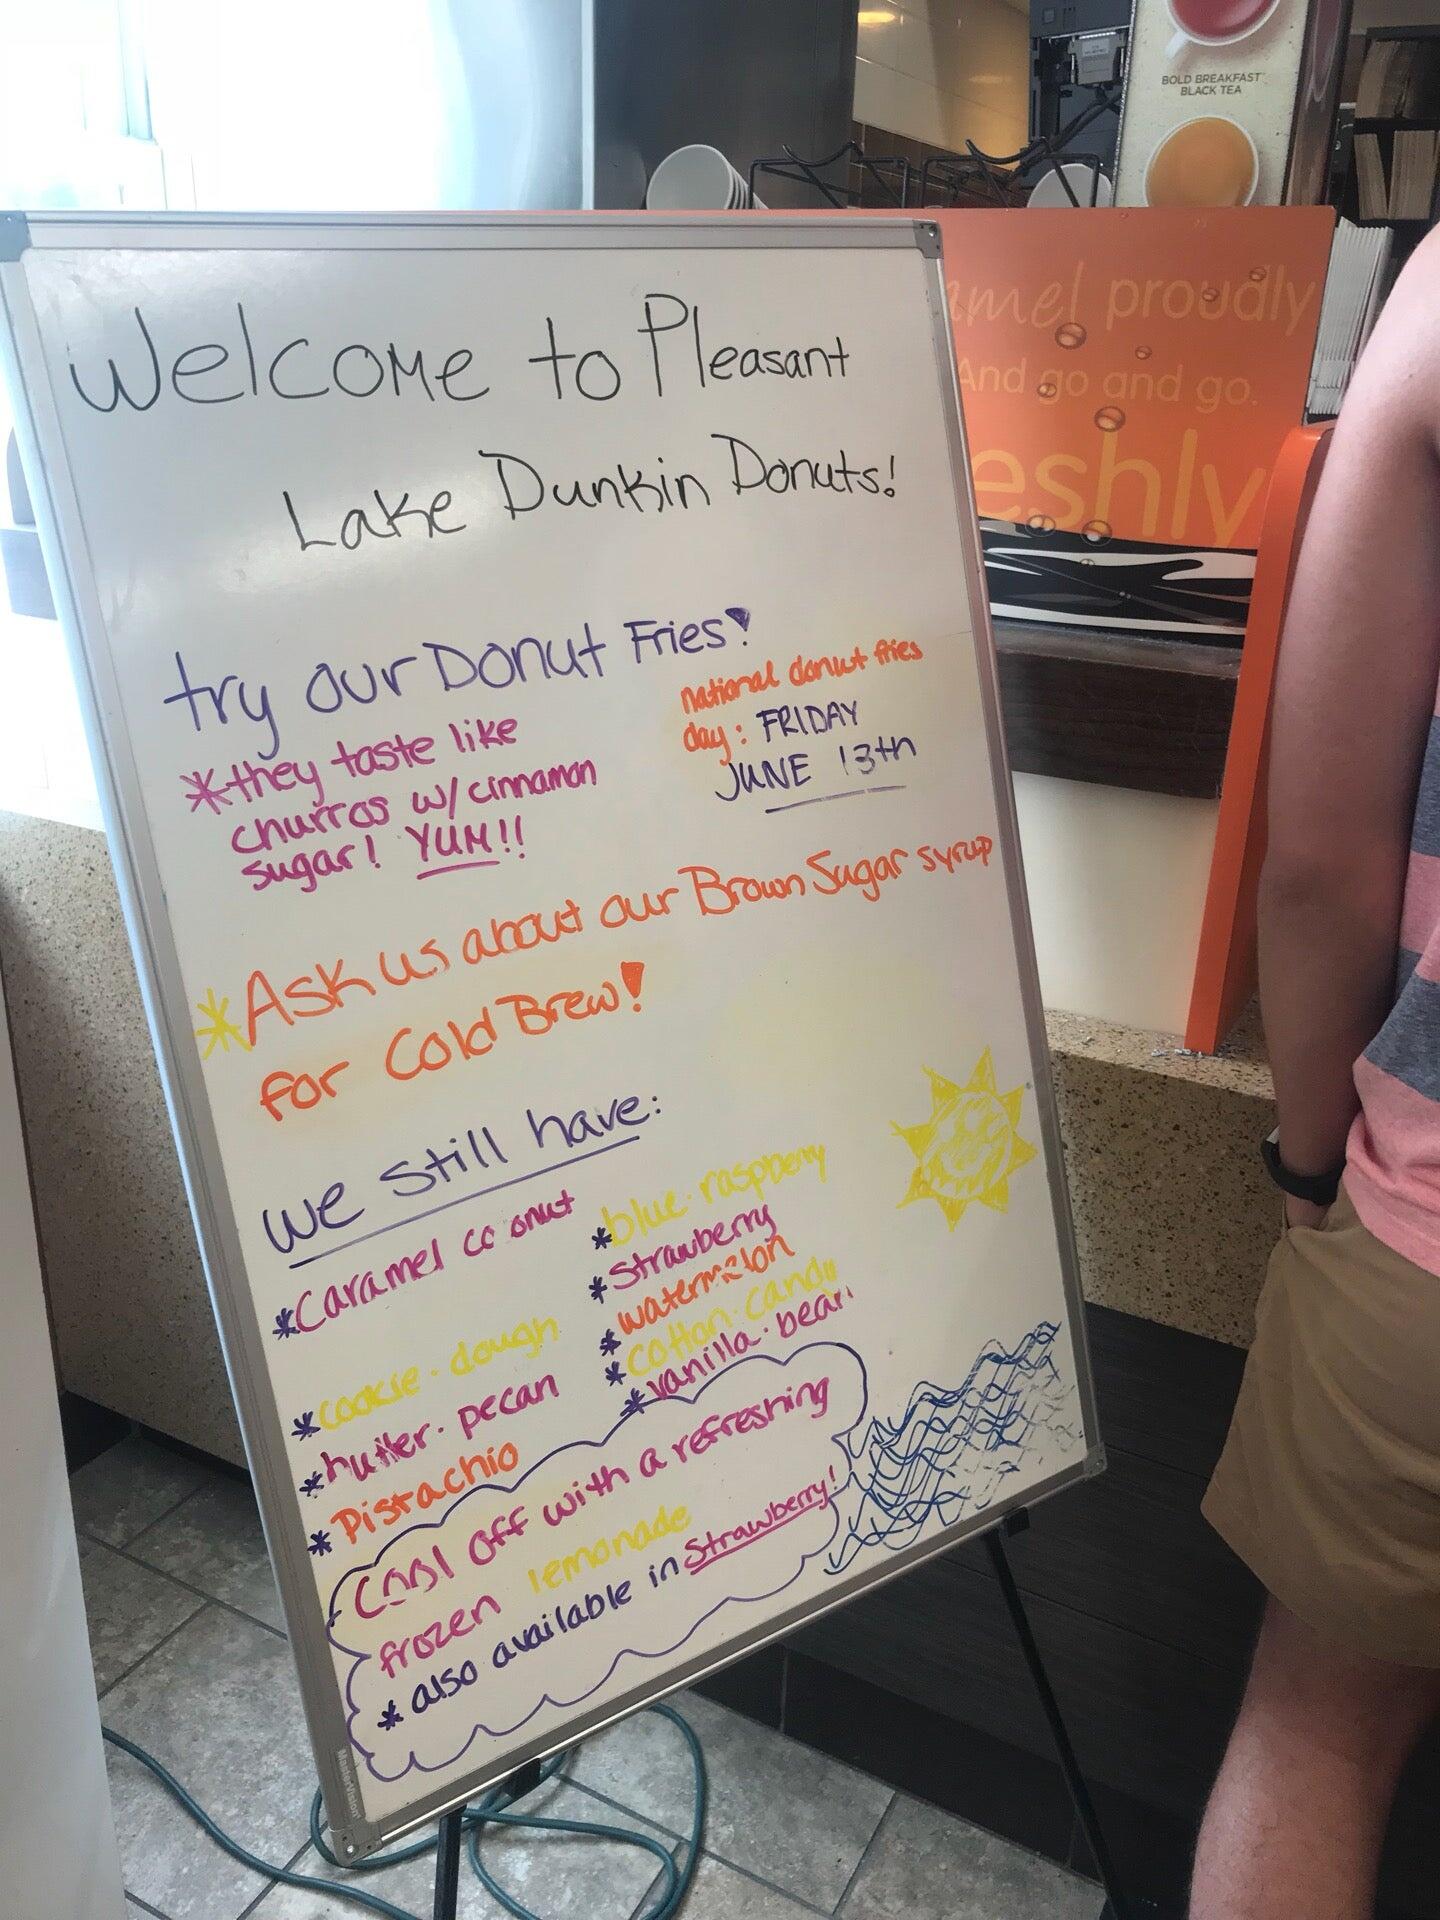 BOLD BREAKFAST™
BLACK TEA
amel proudly
And go and go.
eshly
Welcome to Pleasant
Lake Dunkin Donuts!
try our Donut Fries!
*they taste like
churros w/cinnamon
sugar! YUM!!
national donut fries
day: FRIDAY
JUNE 13th
*Ask us about our Brown Sugar syrup
for Cold Brew!
we still have:
*Caramel co onut
*cookie·dough
*butter·pecan
*Pistachio
*blue·raspberry
*strawberry
*watermelon
*cotton·candy
*vanilla·bean
Cool off with a refreshing
frozen lemonade
*also available in Strawberry!
MasterVision